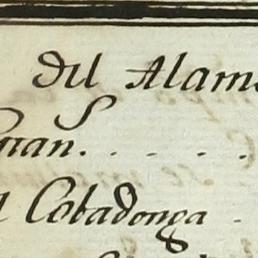 del Alam
uan. . . . .
l Cobadonga -